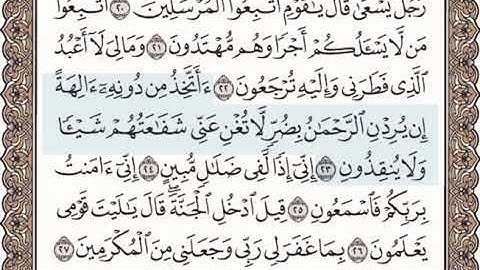 رَجُلٌ يَسْعَىٰ قَالَ يَٰقَوْمِ ٱتَّبِعُوا۟ ٱلْمُرْسَلِينَ ٢٠ ٱتَّبِعُوا۟
مَن لَّا يَسْـَٔلُكُمْ أَجْرًا وَهُم مُّهْتَدُونَ ٢١ وَمَالِىَ لَآ أَعْبُدُ
ٱلَّذِى فَطَرَنِى وَإِلَيْهِ تُرْجَعُونَ ٢٢ ءَأَتَّخِذُ مِن دُونِهِۦٓ ءَالِهَةً
إِن يُرِدْنِ ٱلرَّحْمَٰنُ بِضُرٍّ لَّا تُغْنِ عَنِّى شَفَٰعَتُهُمْ شَيْـًٔا
وَلَا يُنقِذُونِ ٢٣ إِنِّىٓ إِذًا لَّفِى ضَلَٰلٍ مُّبِينٍ ٢٤ إِنِّىٓ ءَامَنتُ
بِرَبِّكُمْ فَٱسْمَعُونِ ٢٥ قِيلَ ٱدْخُلِ ٱلْجَنَّةَ ۖ قَالَ يَٰلَيْتَ قَوْمِى
يَعْلَمُونَ ٢٦ بِمَا غَفَرَ لِى رَبِّى وَجَعَلَنِى مِنَ ٱلْمُكْرَمِينَ ٢٧